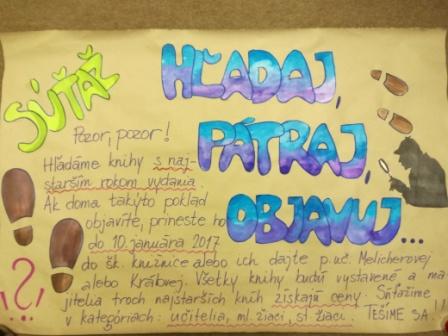 SÚŤAŽ
HĽADAJ,
PÁTRAJ,
OBJAVUJ...
Pozor, pozor!
Hľadáme knihy s naj-
starším rokom vydania.
Ak doma takýto poklad
objavíte, prineste ho
do 10. januára 2017
do šk. knižnice alebo ich dajte p. uč. Melicherovej
alebo Kráľovej. Všetky knihy budú vystavené a ma
jitelia troch najstarších kníh získajú ceny. Súťažíme
v kategóriach: učitelia, ml. žiaci, st. žiaci. TEŠÍME SA!
?!